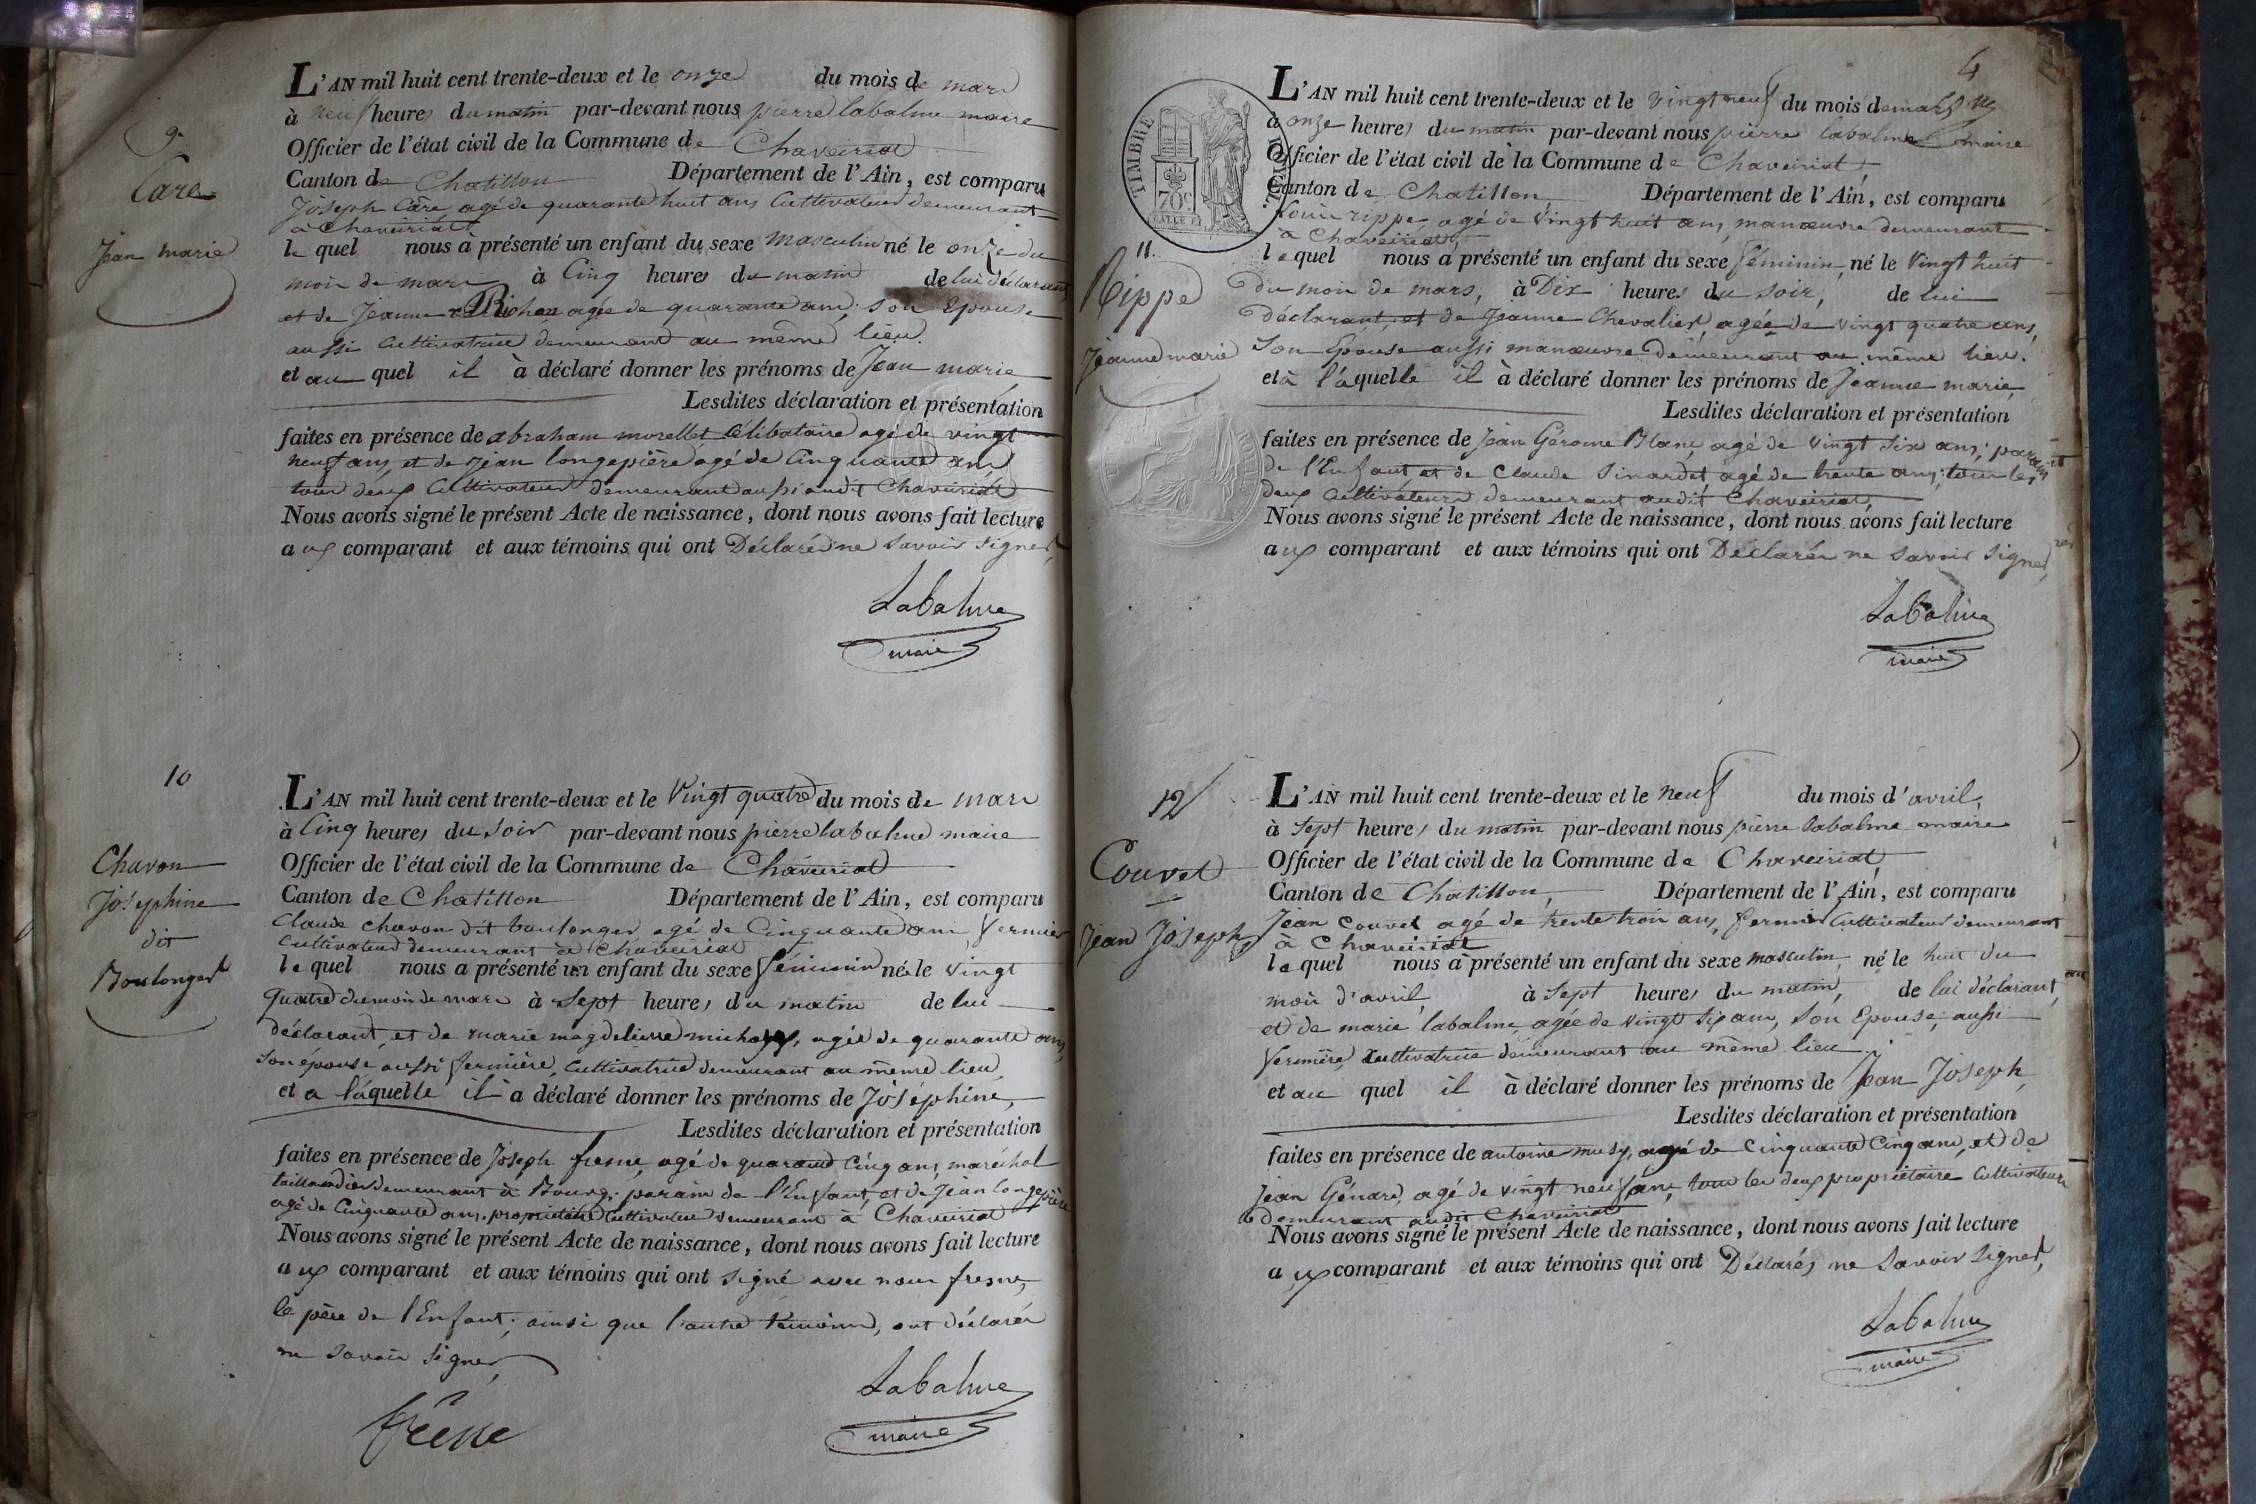 9.
Care
Jean marie
L'AN mil huit cent trente-deux et le onze du mois de mars
à neuf heures du matin par-devant nous pierre labalme maire
Officier de l'état civil de la Commune de Chaveiriat
Canton de Chatillon Département de l'Ain, est comparu
Joseph Care agé de quarante huit ans Cultivateur demeurant
à Chaveiriat
le quel nous à présenté un enfant du sexe masculin né le onze du
mois de mars à Cinq heures du matin de lui déclarant
et de Jeanne agée de quarante ans son Epouse
aussi Cultivatrice demeurant au même lieu.
et au quel il à déclaré donner les prénoms de Jean marie
Lesdites déclaration et présentation
faites en présence de abraham morellet Célibataire agé de vingt
neuf ans, et de Jean longepière agé de Cinquante ans
tous deux Cultivateurs demeurant aussi audit Chaveiriat
Nous avons signé le présent Acte de naissance, dont nous avons fait lecture
aux comparant et aux témoins qui ont Déclarés ne savoir signer,
Labalme
maire
10
Chavon
Joséphine
dit
Boulonger
L'AN mil huit cent trente-deux et le Vingt quatre du mois de mars
à Cinq heures du soir par-devant nous pierre labalme maire
Officier de l'état civil de la Commune de Chaveiriat
Canton de Chatillon Département de l'Ain, est comparu
Claude chavon dit boulonger agé de Cinquante ans, fermier
Cultivateur demeurant à Chaveiriat
le quel nous a présenté un enfant du sexe féminin né le vingt
quatre du mois de mars à Sept heures du matin de lui
déclarant, et de marie magdeleine agée de quarante ans,
son épouse aussi fermière, Cultivatrice demeurant au même lieu,
et a láquelle il à déclaré donner les prénoms de Joséphine,
Lesdites déclaration et présentation
faites en présence de Joseph fresne, agé de quarante Cinq ans, maréchal
taillandier demeurant à Bourg, parain de l'Enfant, et de Jean longepière
agé de Cinquante ans, propriétaire Cultivateur demeurant à Chaveiriat
Nous avons signé le présent Acte de naissance, dont nous avons fait lecture
aux comparant et aux témoins qui ont signé avec nous fresne,
le père de l'Enfant, ainsi que l'autre témoins, ont déclarés
ne savoir signer,
frésne
Labalme
maire
4
TIMBRE ROYAL
70c
11.
Rippe
Jeanne marie
L'AN mil huit cent trente-deux et le vingt neuf du mois de mars
à onze heures du matin par-devant nous pierre labalme maire
Officier de l'état civil de la Commune de Chaveiriat
Canton de Chatillon Département de l'Ain, est comparu
Louis rippe agé de Vingt huit ans, manœuvre demeurant
à Chaveiriat,
le quel nous a présenté un enfant du sexe féminin, né le Vingt huit
du mois de mars, à Dix heures du soir, de lui
déclarant, et de Jeanne Chevalier, agée de vingt quatre ans,
son Epouse aussi manœuvre demeurant au même lieu.
et à láquelle il à déclaré donner les prénoms de Jeanne marie,
Lesdites déclaration et présentation
faites en présence de Jean Gérome Blanc, agé de vingt six ans, parain
de l'Enfant et de Claude Sinardet, agé de trente ans, tous les
deux Cultivateurs demeurant audit Chaveiriat,
Nous avons signé le présent Acte de naissance, dont nous avons fait lecture
aux comparant et aux témoins qui ont Déclarés ne savoir signer,
Labalme
maire
12
Couvet
Jean Joseph
L'AN mil huit cent trente-deux et le neuf du mois d'avril,
à sept heures du matin par-devant nous pierre labalme maire
Officier de l'état civil de la Commune de Chaveiriat,
Canton de Chatillon, Département de l'Ain, est comparu
Jean Couvet agé de trente trois ans, fermier Cultivateur demeurant
à Chaveiriat
le quel nous à présenté un enfant du sexe masculin, né le huit du
mois d'avril, à sept heures du matin, de lui déclarant,
et de marie labalme, agée de vingt six ans, son Epouse, aussi
fermière, Cultivatrice demeurant au même lieu.
et au quel il à déclaré donner les prénoms de Jean Joseph
Lesdites déclaration et présentation
faites en présence de antoine musy, agé de Cinquante Cinq ans, et de
Jean Génard, agé de vingt neuf ans, tous les deux propriétaire Cultivateurs
demeurant audit Chaveiriat
Nous avons signé le présent Acte de naissance, dont nous avons fait lecture
aux comparant et aux témoins qui ont Déclarés ne savoir signer,
Labalme
maire